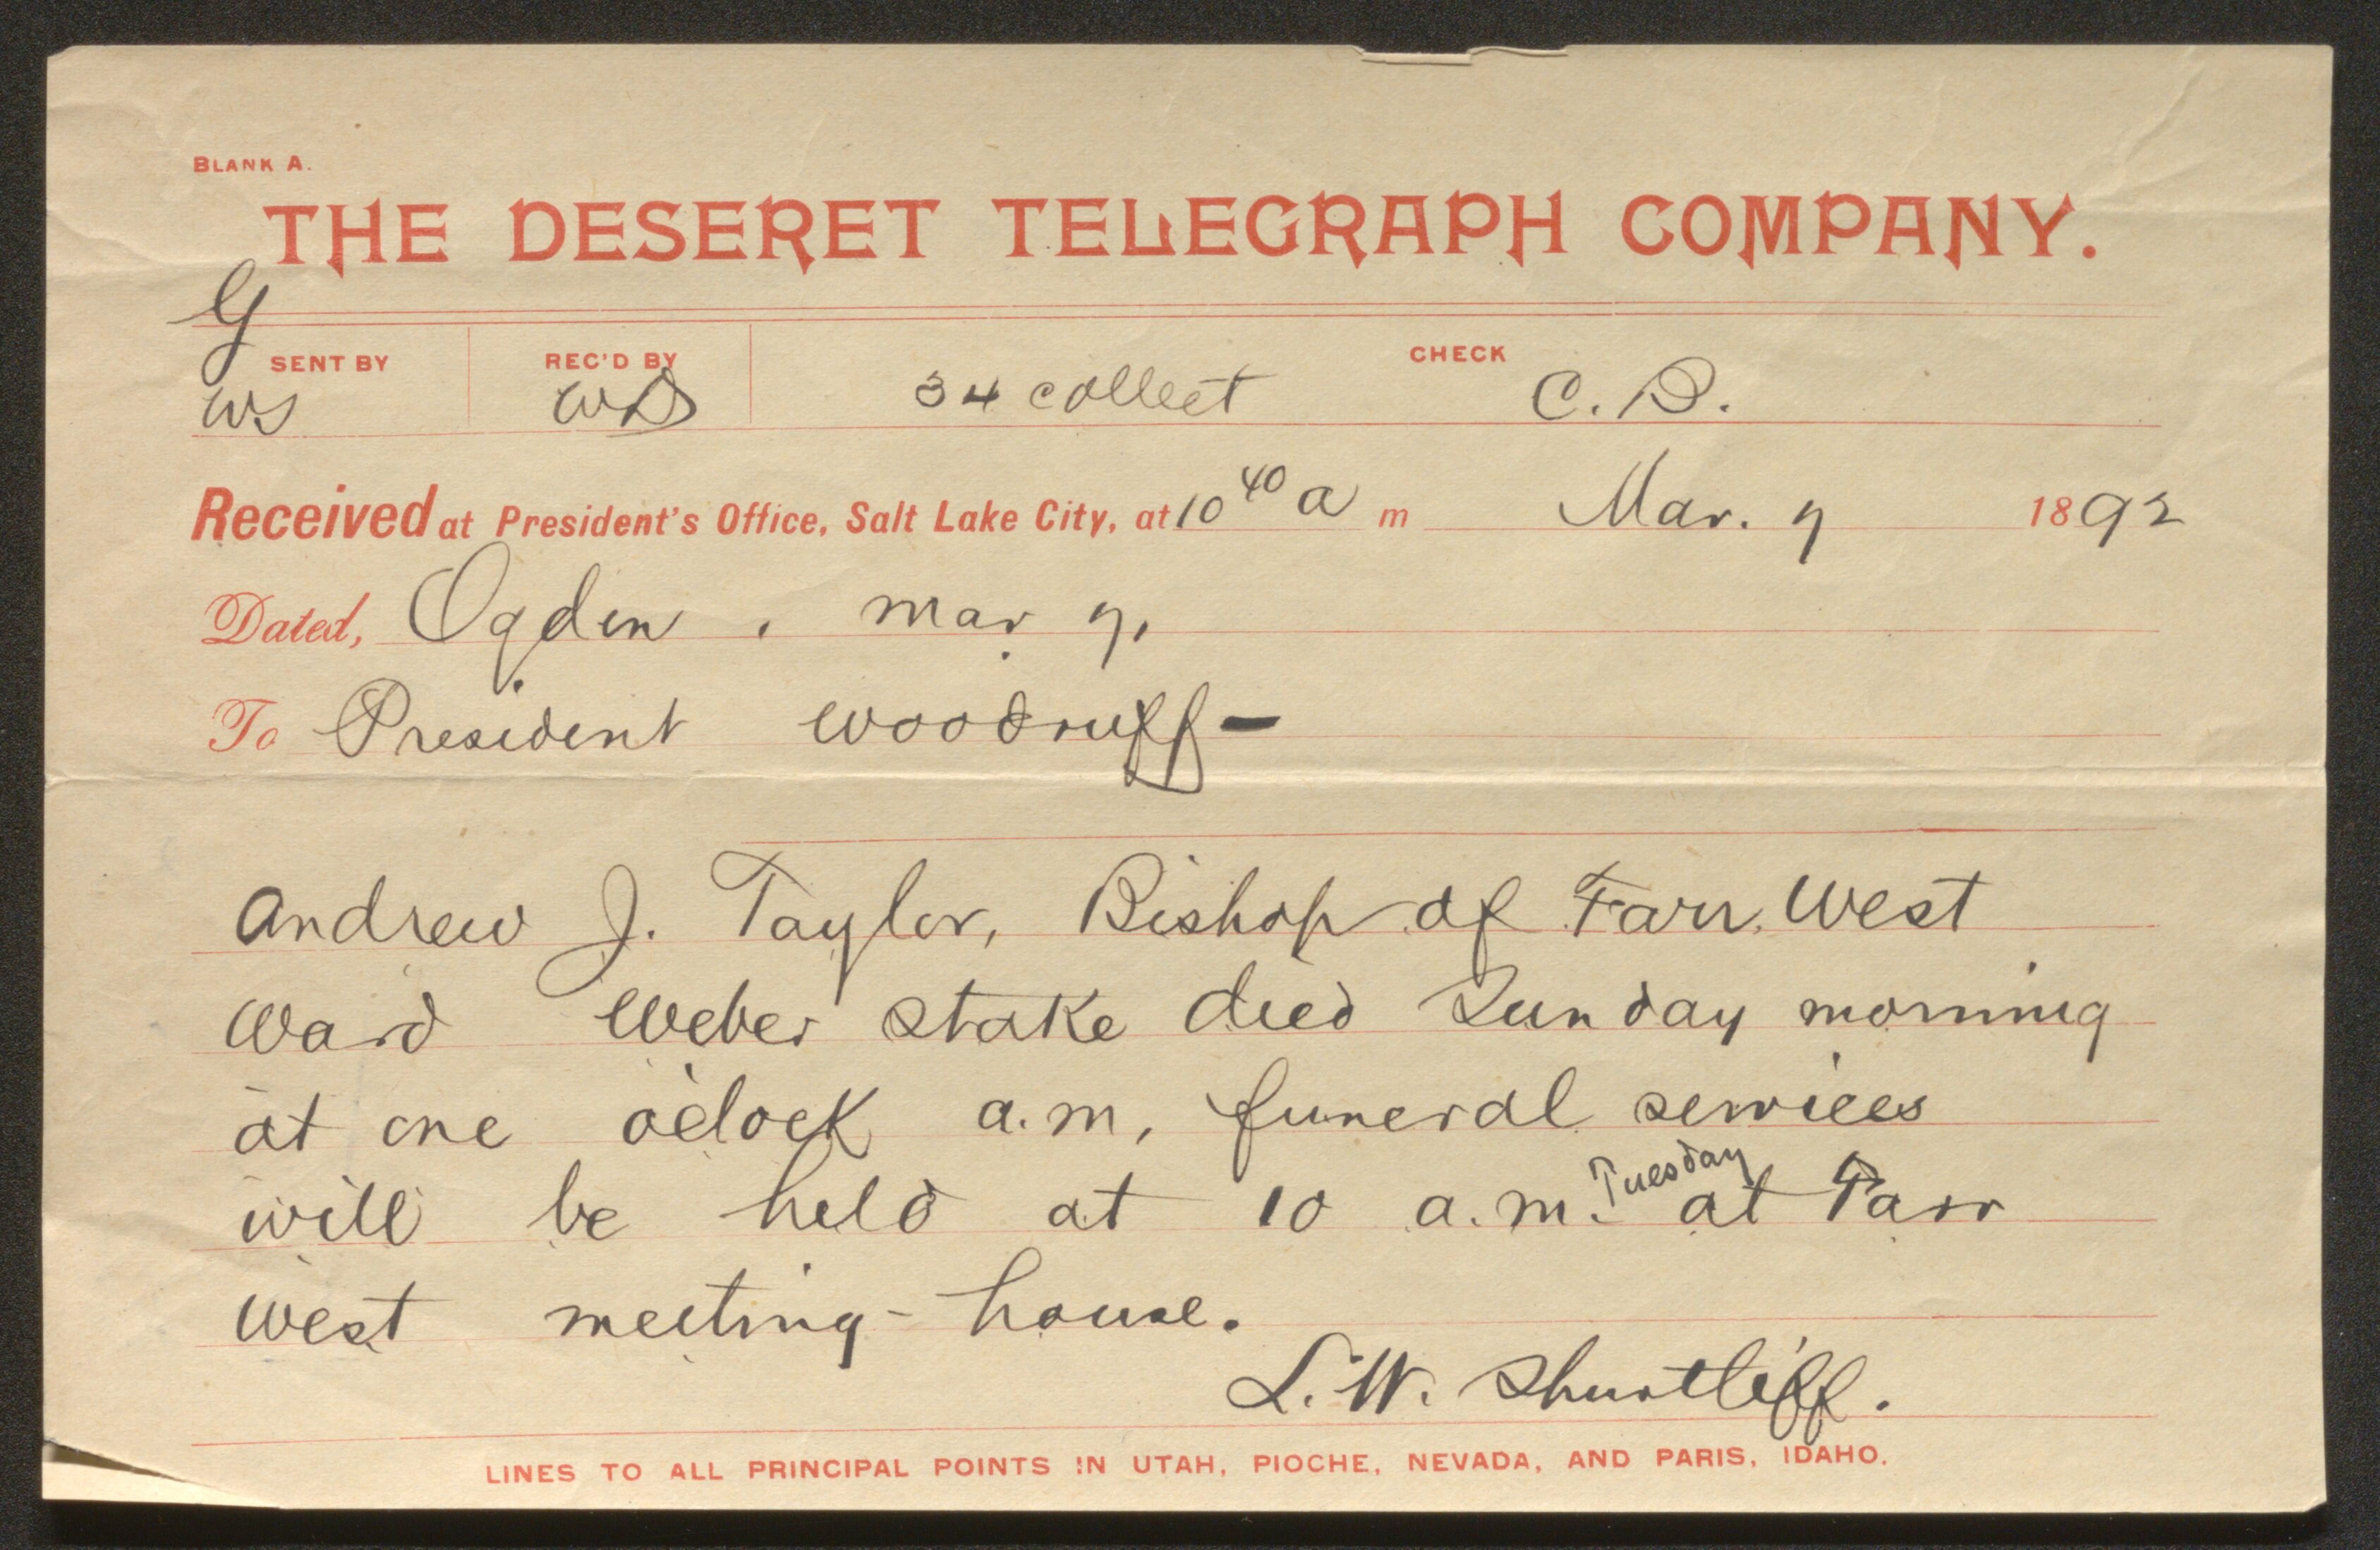 BLANK A.
THE DESERET TELEGRAPH COMPANY.
G
SENT BY REC'D BY CHECK
WS WS 34 collect C.D.
Received at President's Office, Salt Lake City, at 10 40 a m Mar. 7 1892
Dated, Ogden, mar 7,
To President Woodruff -
Andrew J. Taylor, Bishop of Farr West
Ward Weber Stake died Sunday morning
at one o'clock a.m, funeral services
will be held at 10 a.m. Tuesday at Farr
West meeting-house.
L.W. Shurtliff.
LINES TO ALL PRINCIPAL POINTS IN UTAH, PIOCHE, NEVADA, AND PARIS, IDAHO.